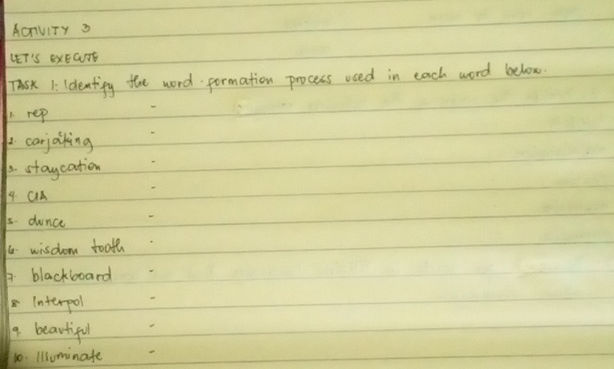 ACTIVITY 3
LET'S EXECUTE
TASK 1: Identify the word-formation process used in each word below.
1. rep -
2. carjacking -
3. staycation -
4. CIA -
5. dunce -
6. wisdom tooth -
7. blackboard -
8. Interpol -
9. beautiful -
10. Illuminate -